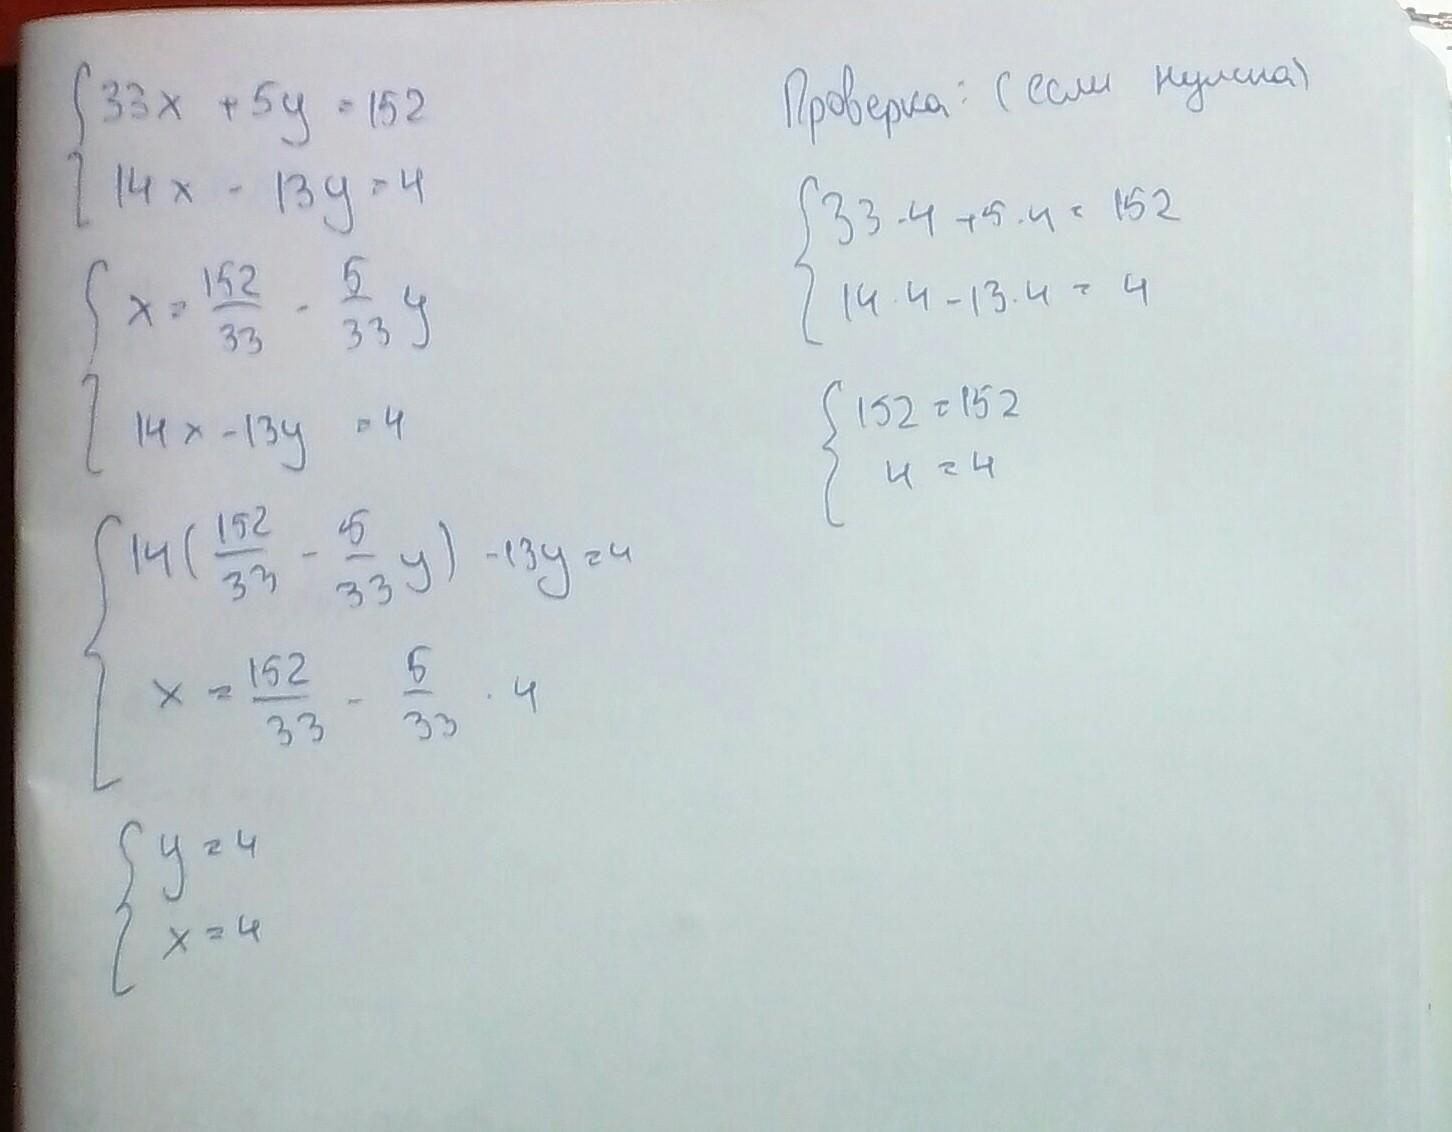 33x + 5y = 152
14x - 13y = 4
x = 152/33 - 5/33 y
14x - 13y = 4
14(152/33 - 5/33 y) - 13y = 4
x = 152/33 - 5/33 · 4
y = 4
x = 4
Проверка: (если нужна)
33·4 + 5·4 = 152
14·4 - 13·4 = 4
152 = 152
4 = 4